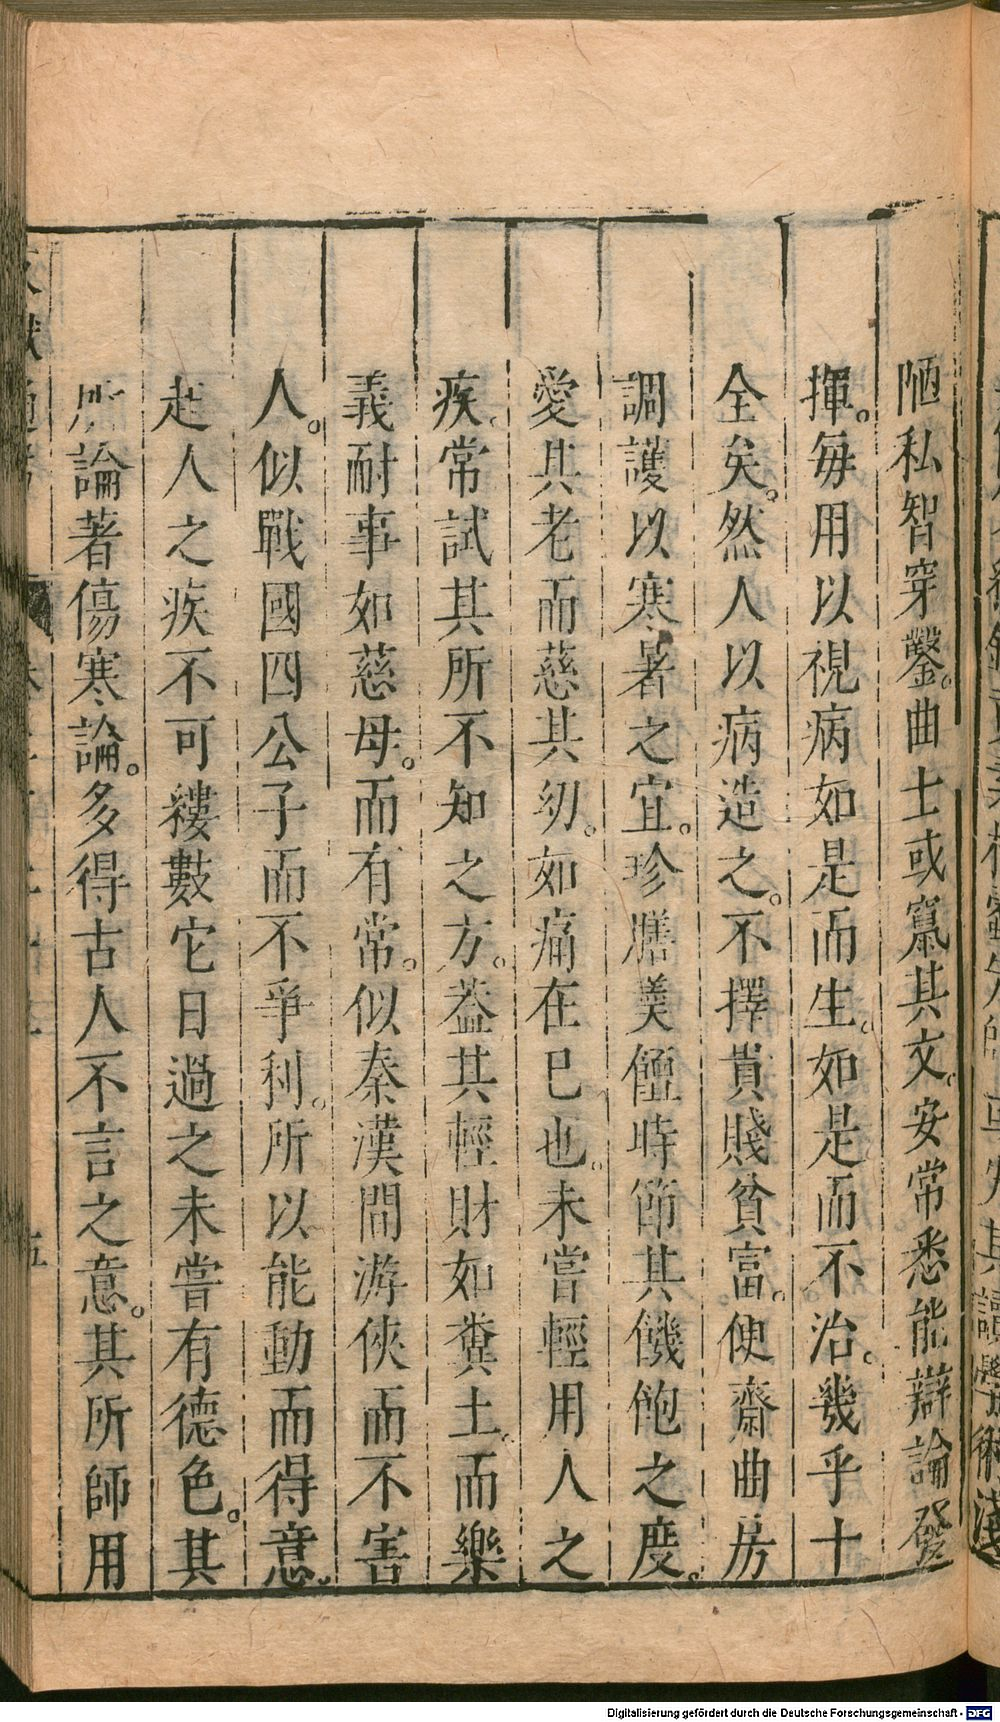 陋私智穿鑿。曲士或竄其文。安常悉能辯論發
揮。每用以視病如是而生。如是而不治。幾乎十
全矣。然人以病造之。不擇貴賤貧富。便齋曲房
調護以寒暑之宜。珍膳美饘時節其饑飽之度。
愛其老而慈其幼。如痛在巳也。未嘗輕用人之
疾。常試其所不知之方。葢其輕財如糞土。而樂
義耐事如慈母。而有常。似秦漢間游俠而不害
人。似戰國四公子而不爭利。所以能動而得意。
起人之疾不可縷數它日過之未嘗有德色。其
所論著傷寒論。多得古人不言之意。其所師用
五
Digitalisierung gefördert durch die Deutsche Forschungsgemeinschaft - DFG